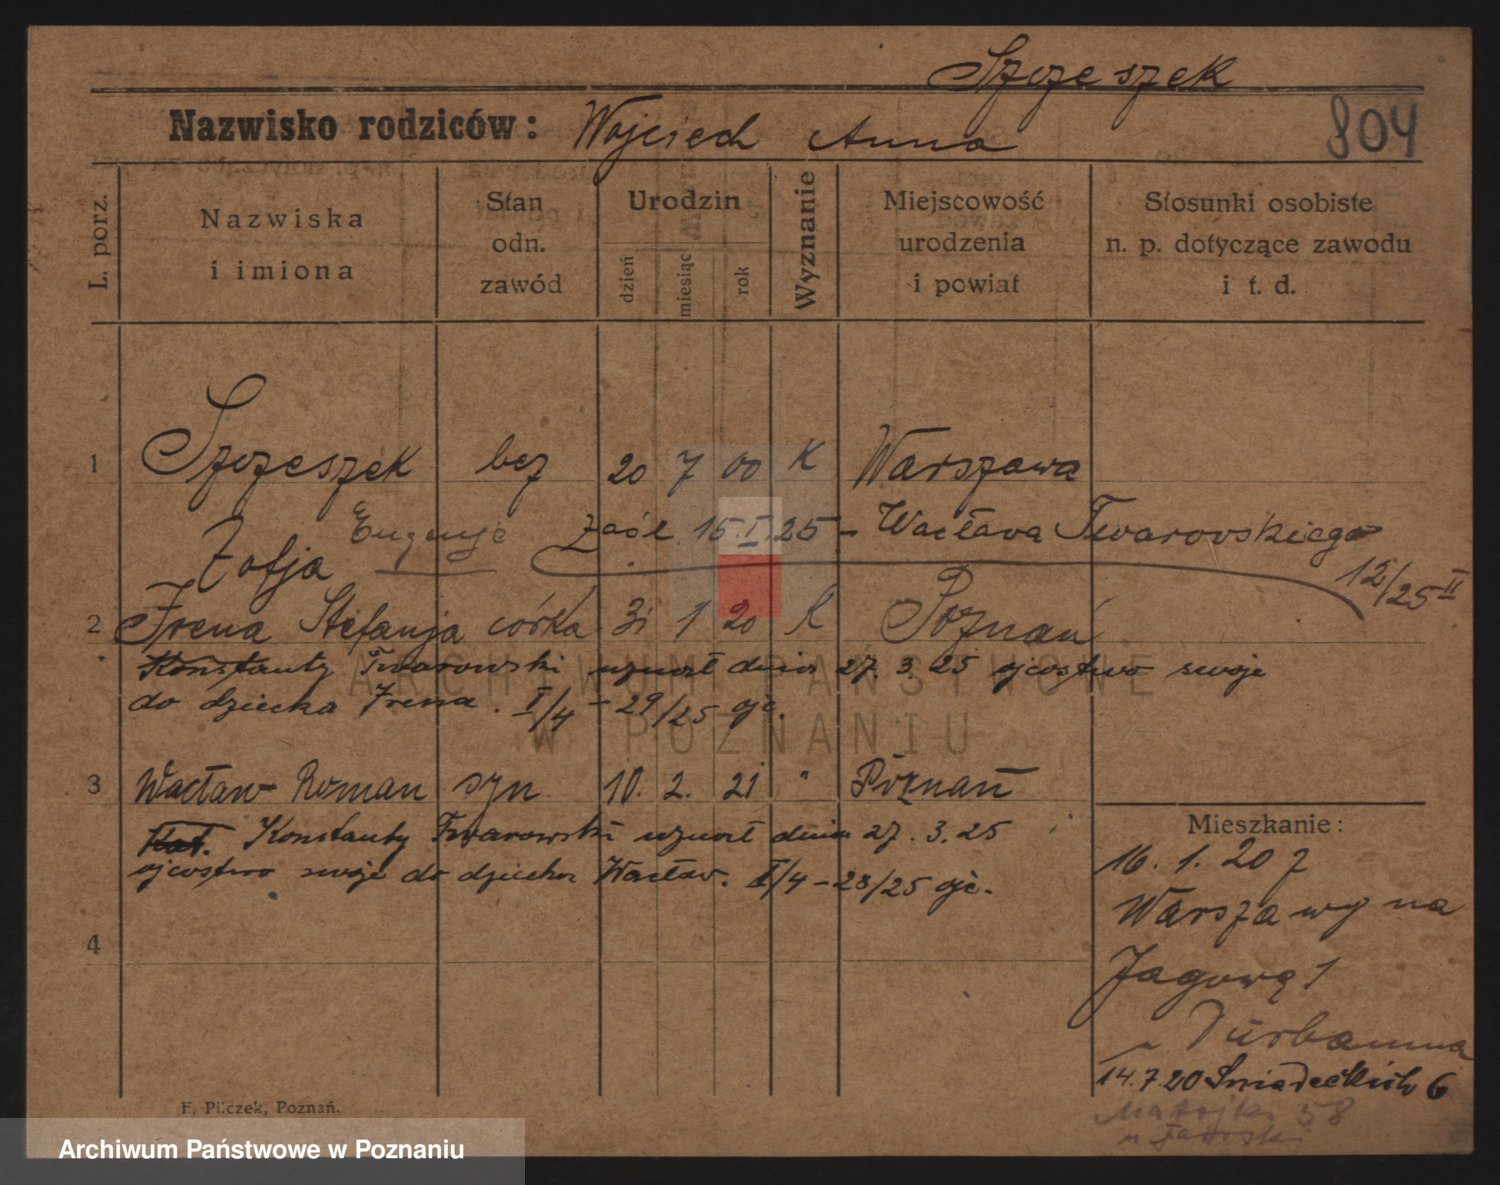 Szczeszek
Nazwisko rodziców: Wojciech Anna
804
L. porz.
Nazwiska
i imiona
Stan
odn.
zawód
Urodzin
dzień
miesiąc
rok
Wyznanie
Miejscowość
urodzenia
i powiat
Stosunki osobiste
n. p. dotyczące zawodu
i t. d.
1 Szczeszek bez 20 7 00 K Warszawa
Zofja Eugenje Zaśl. 15.I.25 – Wacława Twarowskiego
12/25 II
2 Irena Stefanja córka 31 1 20 K Poznań
Konstanty Twarowski uznał dnia 27.3.25 ojcostwo swoje
do dziecka Irena. I/4 – 29/25 ojc.
3 Wacław Roman syn 10. 2. 21 " Poznań
Kat. Konstanty Twarowski uznał dnia 27.3.25
ojcostwo swoje do dziecka Wacław. I/4 – 28/25 ojc.
4
Mieszkanie:
16. 1. 20 z
Warszawy na
Jagową 1
u Durbanna
14.7.20 Śniadeckich 6
Matejki 58
u
F. Pilczek, Poznań.
ARCHIWUM PAŃSTWOWE
W POZNANIU
Archiwum Państwowe w Poznaniu